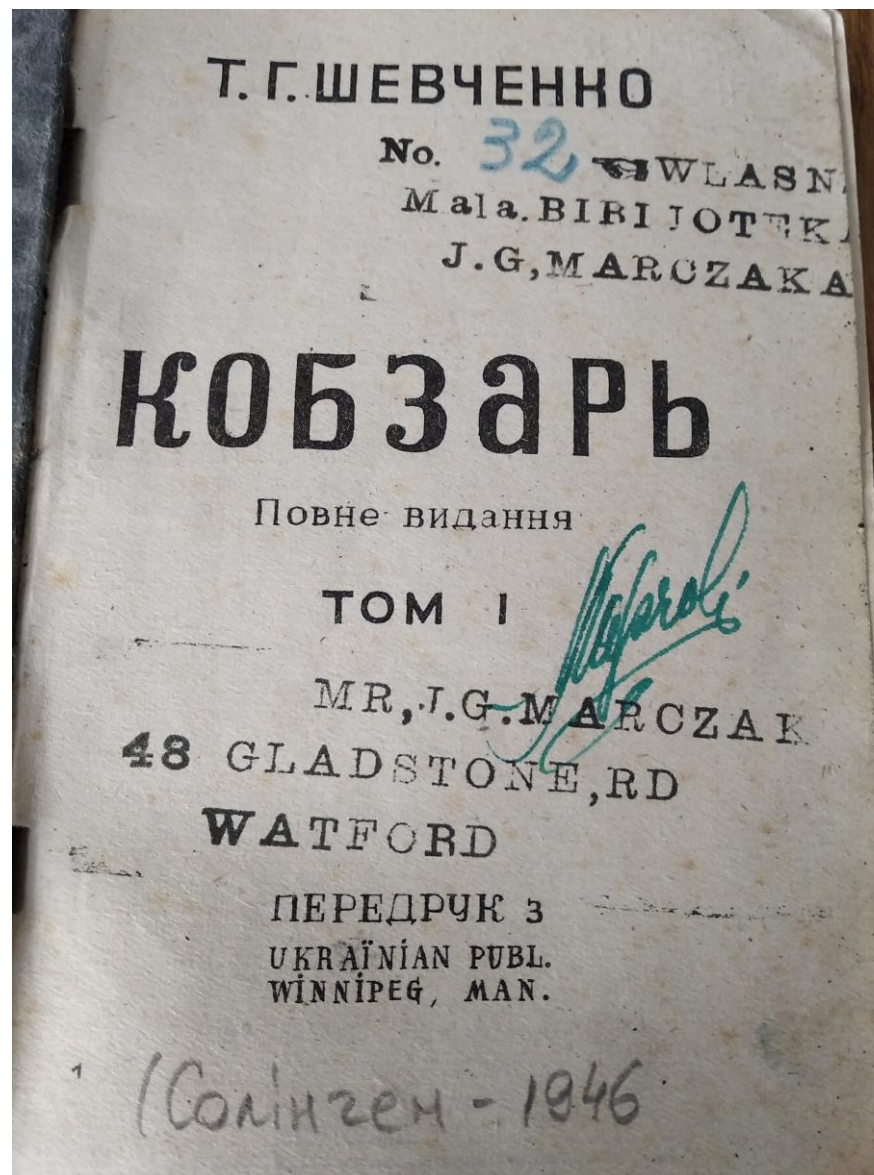 Т. Г. ШЕВЧЕНКО
No. 32 WLASN
Mala. BIBIJOTEKA
J.G,MARCZAKA
КОБЗАРЬ
Повне видання
ТОМ I
MR,J.G.MARCZAK
48 GLADSTONE,RD
WATFORD
ПЕРЕДРУК З
UKRAÏNİAN PUBL.
WİNNİPEG, MAN.
1
(Солінген - 1946